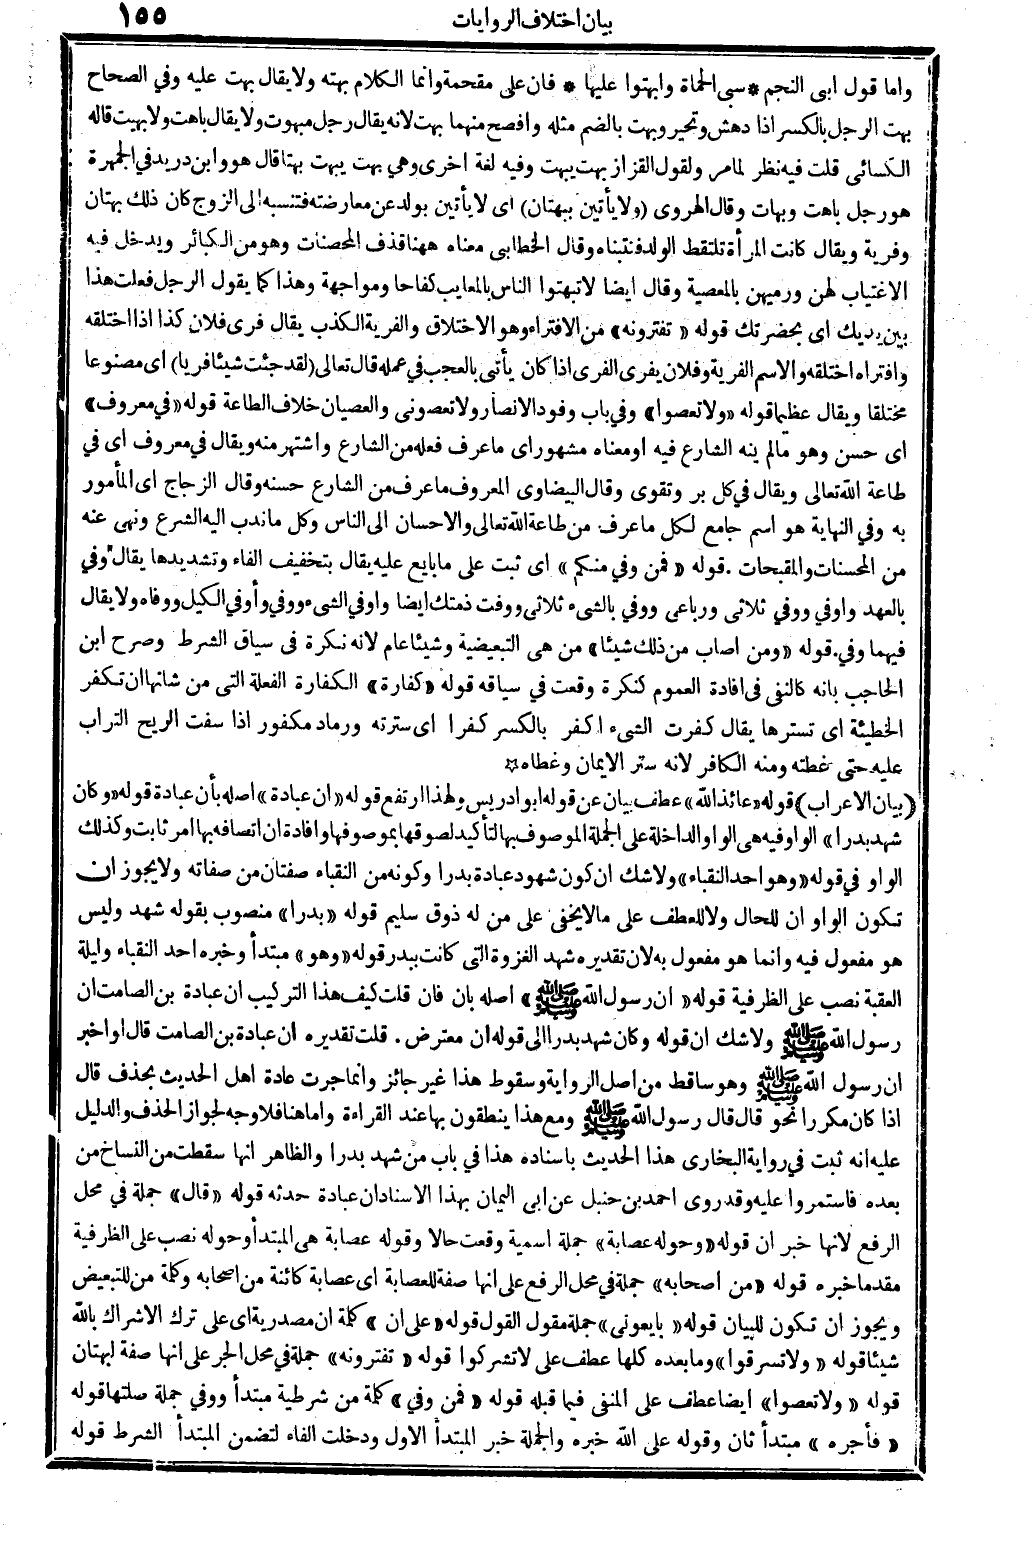 بيان اختلاف الروايات ١٥٥
واما قول ابى النجم * سبى الحماة وابهتوا عليها * فان على مقحمة وانما الكلام بهته ولا يقال بهت عليه وفي الصحاح
بهت الرجل بالكسر اذا دهش وتحير وبهت بالضم مثله وافصح منهما بهت لانه يقال رجل مبهوت ولا يقال باهت ولا بهيت قاله
الكسائى قلت فيه نظر لما مر ولقول القزاز بهت يبهت وفيه لغة اخرى وهي بهت يبهت بهتا قال هو وابن دريد في الجمهرة
هو رجل باهت وبهات وقال الهروى (ولا يأتين ببهتان) اى لا يأتين بولد عن معارضته فتنسبه الى الزوج كان ذلك بهتان
وفرية ويقال كانت المرأة تلتقط الولد فتتبناه وقال الخطابى معناه ههنا قذف المحصنات وهو من الكبائر ويدخل فيه
الاغتياب لهن ورميهن بالمعصية وقال ايضا لا تبهتوا الناس بالمعايب كفاحا ومواجهة وهذا كما يقول الرجل فعلت هذا
بين يديك اى بحضرتك قوله « تفترونه » من الافتراء وهو الاختلاق والفرية الكذب يقال فرى فلان كذا اذا اختلقه
وافتراه اختلقه والاسم الفرية وفلان يفرى الفرى اذا كان يأتى بالعجب في عمله قال تعالى (لقد جئت شيئا فريا) اى مصنوعا
مختلقا ويقال عظيما قوله «ولا تعصوا» وفي باب وفود الانصار ولا تعصونى والعصيان خلاف الطاعة قوله «في معروف»
اى حسن وهو مالم ينه الشارع فيه او معناه مشهور اى ما عرف فعله من الشارع واشتهر منه ويقال في معروف اى في
طاعة الله تعالى ويقال في كل بر وتقوى وقال البيضاوى المعروف ما عرف من الشارع حسنه وقال الزجاج اى المأمور
به وفي النهاية هو اسم جامع لكل ما عرف من طاعة الله تعالى والاحسان الى الناس وكل ما ندب اليه الشرع ونهى عنه
من المحسنات والمقبحات . قوله « فمن وفي منكم » اى ثبت على ما بايع عليه يقال بتخفيف الفاء وتشديدها يقال وفي
بالعهد واوفي ووفي ثلاثى ورباعى ووفي بالشىء ثلاثى ووفت ذمتك ايضا واوفي الشىء ووفي وأوفي الكيل ووفاه ولا يقال
فيهما وفي . قوله «ومن اصاب من ذلك شيئا» من هى التبعيضية وشيئا عام لانه نكرة فى سياق الشرط وصرح ابن
الحاجب بانه كالنفى فى افادة العموم كنكرة وقعت في سياقه قوله «كفارة» الكفارة الفعلة التى من شانها ان تكفر
الخطيئة اى تسترها يقال كفرت الشىء اكفر بالكسر كفرا اى سترته ورماد مكفور اذا سفت الريح التراب
عليه حتى غطته ومنه الكافر لانه ستر الايمان وغطاه ☆
(بيان الاعراب) قوله «عائذ الله» عطف بيان عن قوله ابو ادريس ولهذا ارتفع قوله «ان عبادة» اصله بأن عبادة قوله «وكان
شهد بدرا» الواو فيه هى الواو الداخلة على الجملة الموصوف بها لتأكيد لصوقها بموصوفها وافادة ان اتصافه بها امر ثابت وكذلك
الواو في قوله «وهو احد النقباء» ولا شك ان كون شهود عبادة بدرا وكونه من النقباء صفتان من صفاته ولا يجوز ان
تكون الواو ان للحال ولا للعطف على مالا يخفى على من له ذوق سليم قوله «بدرا» منصوب بقوله شهد وليس
هو مفعول فيه وانما هو مفعول به لان تقديره شهد الغزوة التى كانت ببدر قوله «وهو» مبتدأ وخبره احد النقباء وليلة
العقبة نصب على الظرفية قوله « ان رسول الله ﷺ » اصله بان فان قلت كيف هذا التركيب ان عبادة بن الصامت ان
رسول الله ﷺ ولا شك ان قوله وكان شهد بدرا الى قوله ان معترض . قلت تقديره ان عبادة بن الصامت قال او اخبر
ان رسول الله ﷺ وهو ساقط من اصل الرواية وسقوط هذا غير جائز وانما جرت عادة اهل الحديث بحذف قال
اذا كان مكررا نحو قال قال رسول الله ﷺ ومع هذا ينطقون بها عند القراءة واما هنا فلا وجه لجواز الحذف والدليل
عليه انه ثبت في رواية البخارى هذا الحديث باسناده هذا في باب من شهد بدرا والظاهر انها سقطت من النساخ من
بعده فاستمروا عليه وقد روى احمد بن حنبل عن ابى اليمان بهذا الاسناد ان عبادة حدثه قوله «قال» جملة في محل
الرفع لانها خبر ان قوله «وحوله عصابة» جملة اسمية وقعت حالا وقوله عصابة هى المبتدأ وحوله نصب على الظرفية
مقدما خبره قوله «من اصحابه» جملة في محل الرفع على انها صفة للعصابة اى عصابة كائنة من اصحابه وكلمة من للتبعيض
ويجوز ان تكون للبيان قوله « بايعونى » جملة مقول القول قوله «على ان » كلمة ان مصدرية اى على ترك الاشراك بالله
شيئا قوله « ولا تسرقوا» وما بعده كلها عطف على لا تشركوا قوله « تفترونه» جملة في محل الجر على انها صفة لبهتان
قوله « ولا تعصوا» ايضا عطف على المنفى فيما قبله قوله « فمن وفي » كلمة من شرطية مبتدأ ووفي جملة صلتها قوله
« فأجره » مبتدأ ثان وقوله على الله خبره والجملة خبر المبتدأ الاول ودخلت الفاء لتضمن المبتدأ الشرط قوله